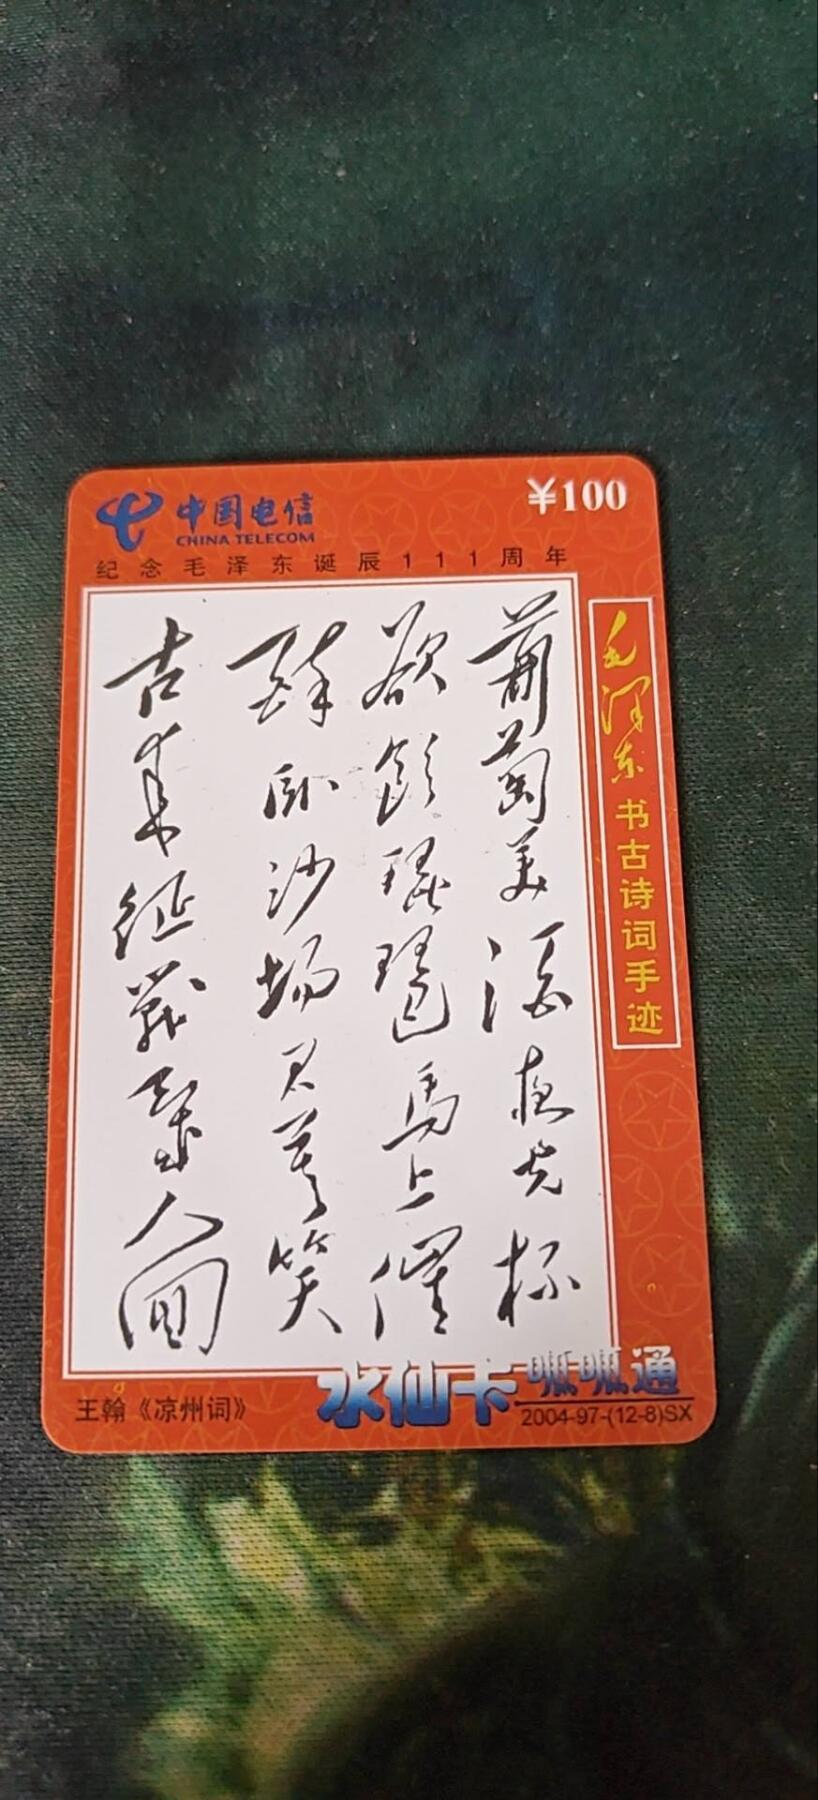 中国电信
CHINA TELECOM
¥100
纪念毛泽东诞辰111周年
毛泽东书古诗词手迹
葡萄美酒夜光杯
欲饮琵琶馬上催
醉卧沙场君莫笑
古来征戰幾人回
王翰《凉州词》
水仙卡 呱呱通
2004-97-(12-8)SX